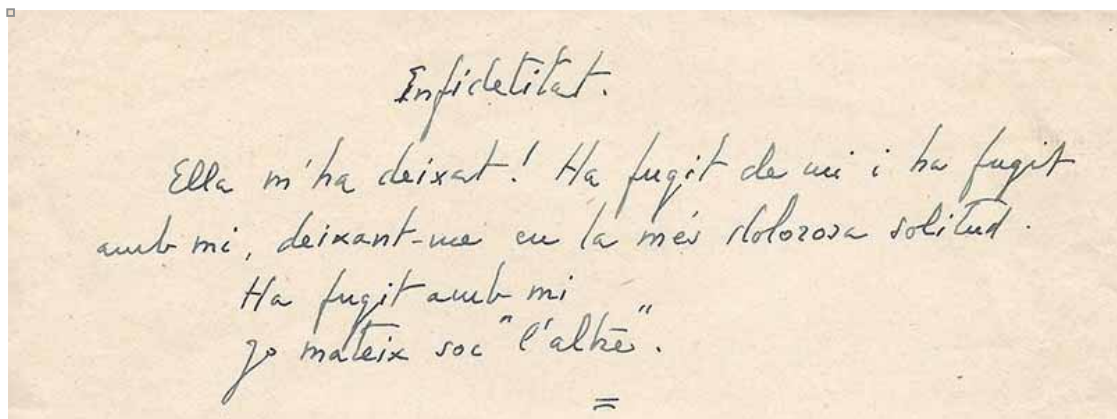 Infidelitat.
Ella m'ha deixat! Ha fugit de mi i ha fugit
amb mi, deixant-me en la més dolorosa solitud.
Ha fugit amb mi
Jo mateix soc "l'altre".
=